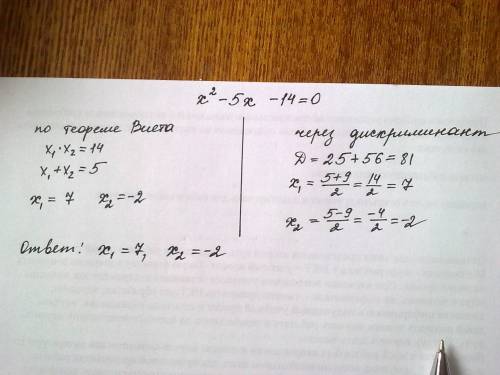 x² - 5x - 14 = 0
по теореме Виета
x₁ · x₂ = 14
x₁ + x₂ = 5
x₁ = 7 x₂ = -2
через дискриминант
D = 25 + 56 = 81
x₁ = (5+9)/2 = 14/2 = 7
x₂ = (5-9)/2 = -4/2 = -2
Ответ: x₁ = 7, x₂ = -2